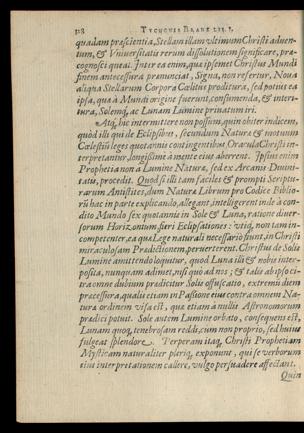 328 TYCHONIS BRAHE LIB. I.
quadam præscientia, Stellam illam ultimum Christi aduen-
tum, & Vniuersitatis rerum dissolutionem significare, præ-
cognosci queat. Inter ea enim, quæ ipsemet Christus Mundi
finem antecessura prænunciat, Signa, non refertur, Noua
aliqua Stellarum Corpora Cœlitus proditura, sed potius ea
ipsa, quæ à Mundi origine fuerunt, consumenda, & interi-
tura, Solemq́, ac Lunam Lumine priuatum iri.
Atq́, hic intermittere non possum, quin obiter indicem,
quòd illi qui de Eclipsibus, secundum Naturæ & motuum
Cœlestiũ leges quotannis contingentibus, Oracula Christi in-
terpretantur, longissimè à mente eius aberrent. Ipsius enim
Prophetia non à Lumine Naturæ, sed ex Arcanis Diuini-
tatis, procedit. Quod si illi tam faciles & prompti Scriptu-
rarum Antistites, dum Naturæ Librum pro Codice Biblio-
rũ hac in parte explicando, allegant, intelligerent inde à con-
dito Mundo sex quotannis in Sole & Luna, ratione diuer-
sorum Horizontum, fieri Eclipsationes: vtiq́, non tam in-
competenter, ea quæ Lege naturali necessariò fiunt, in Christi
miraculosam Prædictionem, peruerterent. Christus de Solis
Lumine amittendo loquitur, quod Luna illi & nobis inter-
posita, nunquam adimet, nisi quo ad nos; & talis ab ipso ci-
tra omne dubium prædicitur Solis offuscatio, extremũ diem
præcessura, qualis etiam in Passione eius contra omnem Na-
turæ ordinem visa est, quæ etiam à nullis Astronomorum
prædici potuit. Sole autem Lumine orbato, consequens est,
Lunam quoq́, tenebrosam reddi, cùm non proprio, sed huius
fulgeat splendore. Perperam itaq́, Christi Prophetiam
Mysticam naturaliter pleriq́, exponunt, qui se verborum
eius interpretationem callere, vulgo persuadere affectant.
Quin